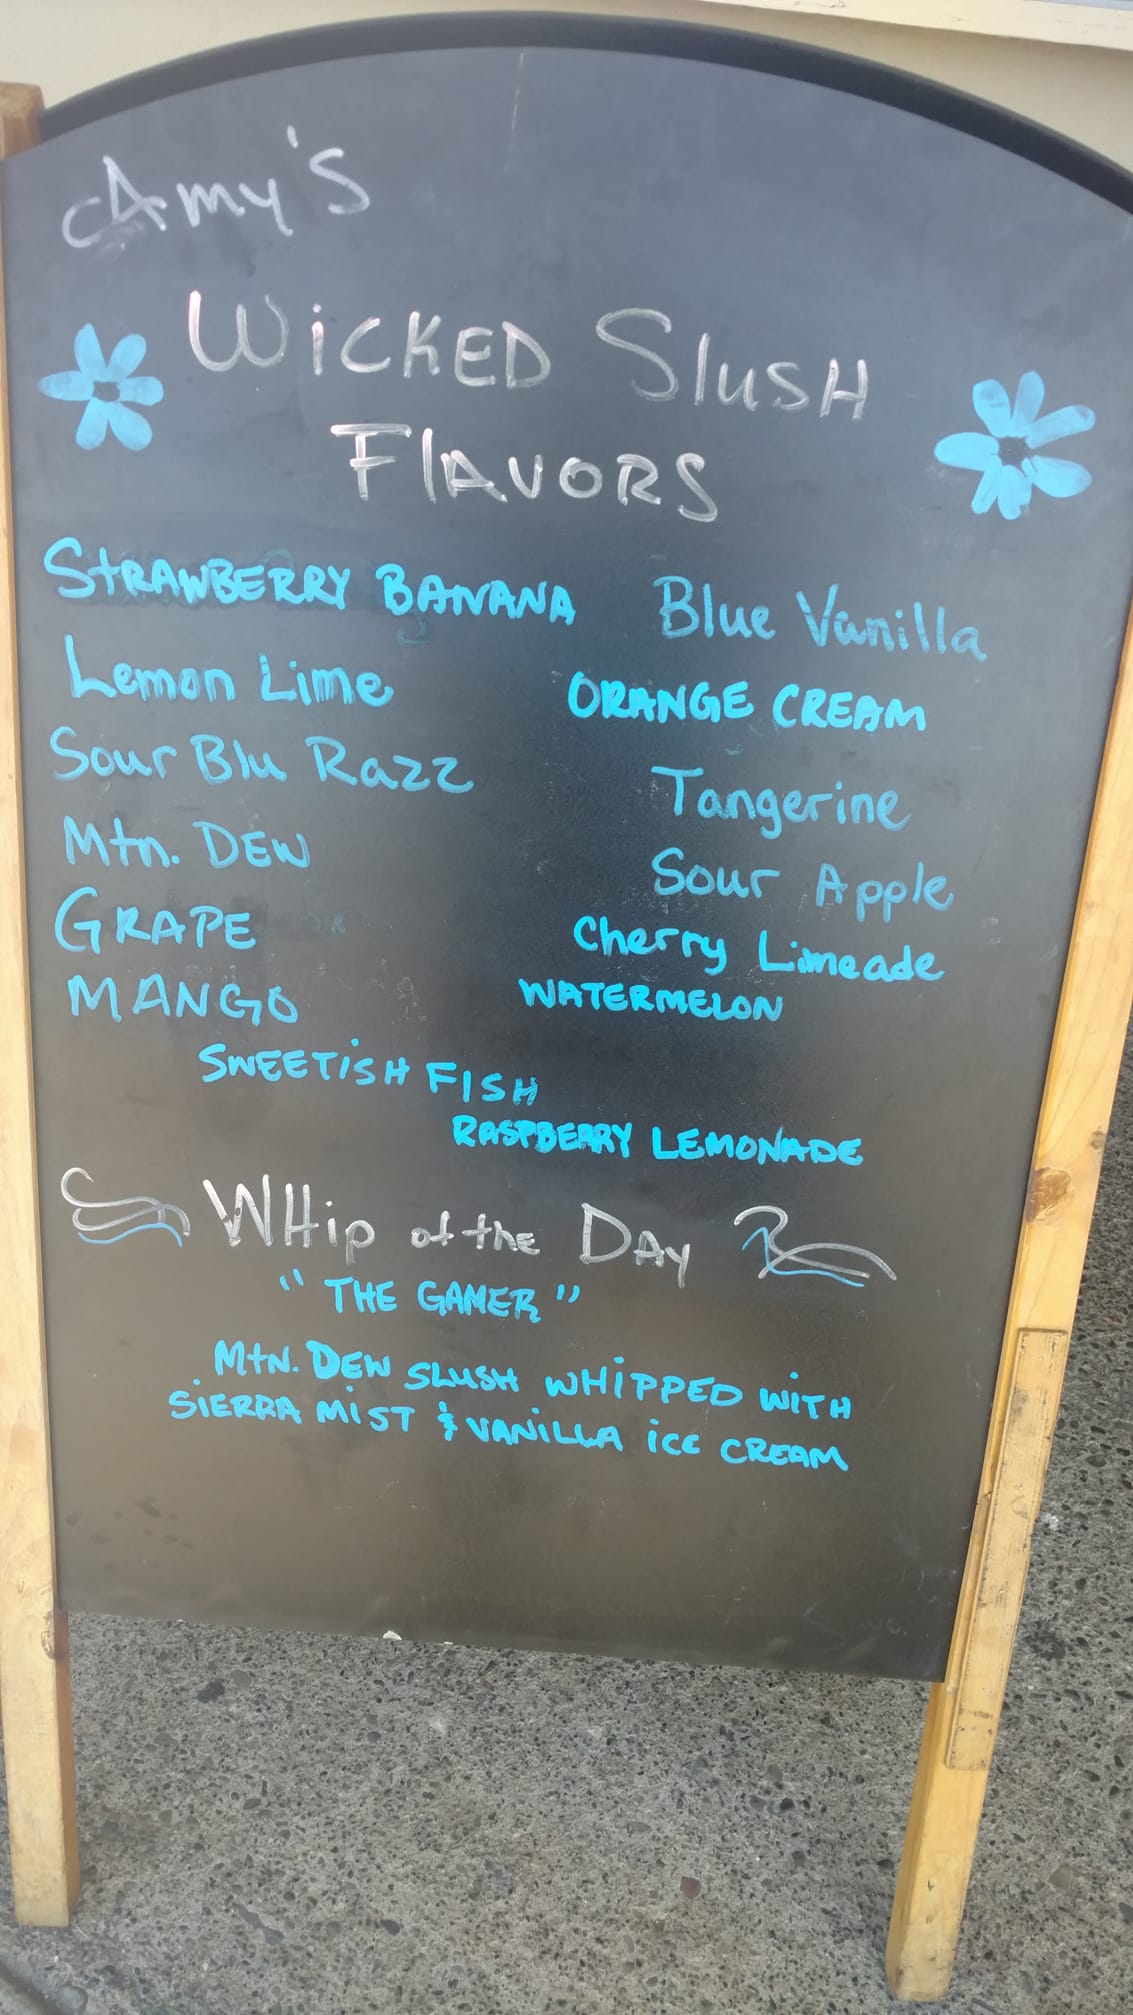 Amy's
Wicked Slush
Flavors
Strawberry Banana
Blue Vanilla
Lemon Lime
Orange Cream
Sour Blu Razz
Tangerine
Mtn. Dew
Sour Apple
Grape
Cherry Limeade
Mango
Watermelon
Sweetish Fish
Raspberry Lemonade
Whip of the Day
"The Gamer"
Mtn. Dew Slush Whipped with
Sierra Mist & Vanilla Ice Cream